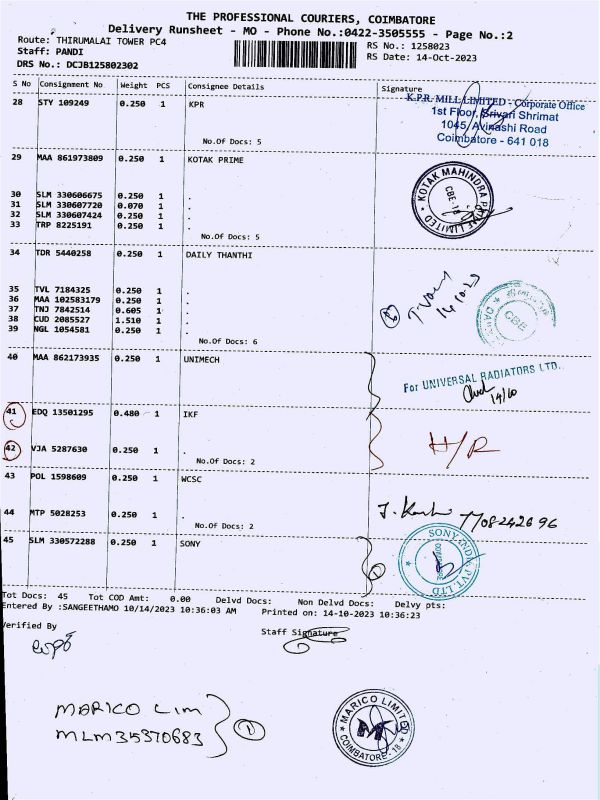 THE PROFESSIONAL COURIERS, COIMBATORE
Delivery Runsheet - MO - Phone No.:0422-3505555 - Page No.:2
Route: THIRUMALAI TOWER PC4
RS No.: 1258023
Staff: PANDI
RS Date: 14-Oct-2023
DRS No.: DCJB125802302
S No Consignment No Weight PCS Consignee Details Signature
28 STY 109249 0.250 1 KPR
K.P.R. MILL LIMITED - Corporate Office
1st Floor, Srivari Shrimat
1045, Avinashi Road
Coimbatore - 641 018
No.Of Docs: 5
29 MAA 861973809 0.250 1 KOTAK PRIME
KOTAK MAHINDRA PRIME LIMITED
CBE-18
30 SLM 330606675 0.250 1 .
31 SLM 330607720 0.070 1 .
32 SLM 330607424 0.250 1 .
33 TRP 8225191 0.250 1 .
No.Of Docs: 5
34 TDR 5440258 0.250 1 DAILY THANTHI
35 TVL 7184325 0.250 1 .
36 MAA 102583179 0.250 1 .
37 TNJ 7842514 0.605 1 .
38 CUD 2085527 1.510 1 .
39 NGL 1054581 0.250 1 .
No.Of Docs: 6
14.10.23
CBE
40 MAA 862173935 0.250 1 UNIMECH
For UNIVERSAL RADIATORS LTD.,
14/10
41 EDQ 13501295 0.480 1 IKF
H/R
42 VJA 5287630 0.250 1 .
No.Of Docs: 2
43 POL 1598609 0.250 1 WCSC
44 MTP 5028253 0.250 1 .
No.Of Docs: 2
7708242696
45 SLM 330572288 0.250 1 SONY
SONY INDIA PVT. LTD
Tot Docs: 45 Tot COD Amt: 0.00 Delvd Docs: Non Delvd Docs: Delvy pts:
Entered By :SANGEETHAMO 10/14/2023 10:36:03 AM Printed on: 14-10-2023 10:36:23
Verified By
Staff Signature
MARICO Lim
MLM35370683
1
MARICO LIMITED
COIMBATORE - 18